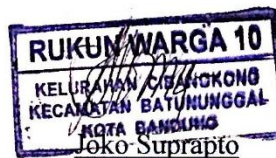 RUKUN WARGA 10
KELURAHAN CIBANGKONG
KECAMATAN BATUNUNGGAL
KOTA BANDUNG
Joko Suprapto